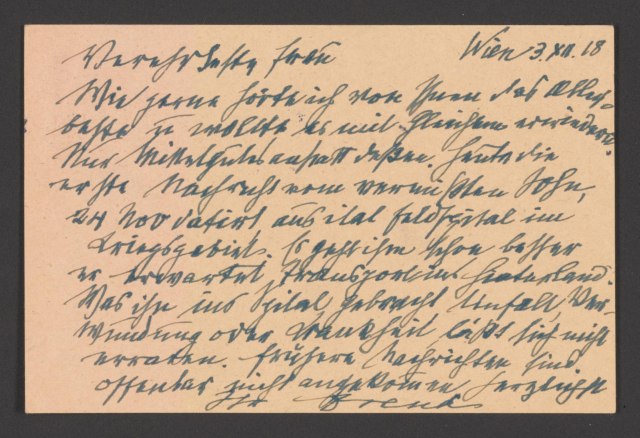 Wien 3. XII. 18
Verehrteste Frau
Wie gerne hörte ich von Ihnen das Aller-
beste u wollte es mit Gleichem erwiedern.
Nur Mittelgutes anstatt dessen. Heute die
erste Nachricht vom vermißten Sohn,
24 Nov datirt aus ital Feldspital im
Kriegsgebiet. Es geht ihm schon besser
er erwartet Transport ins Hinterland.
Was ihn ins Spital gebracht Unfall, Ver-
wundung oder Krankheit läßt sich nicht
erraten. Frühere Nachrichten sind
offenbar nicht angekommen herzlichst
Ihr